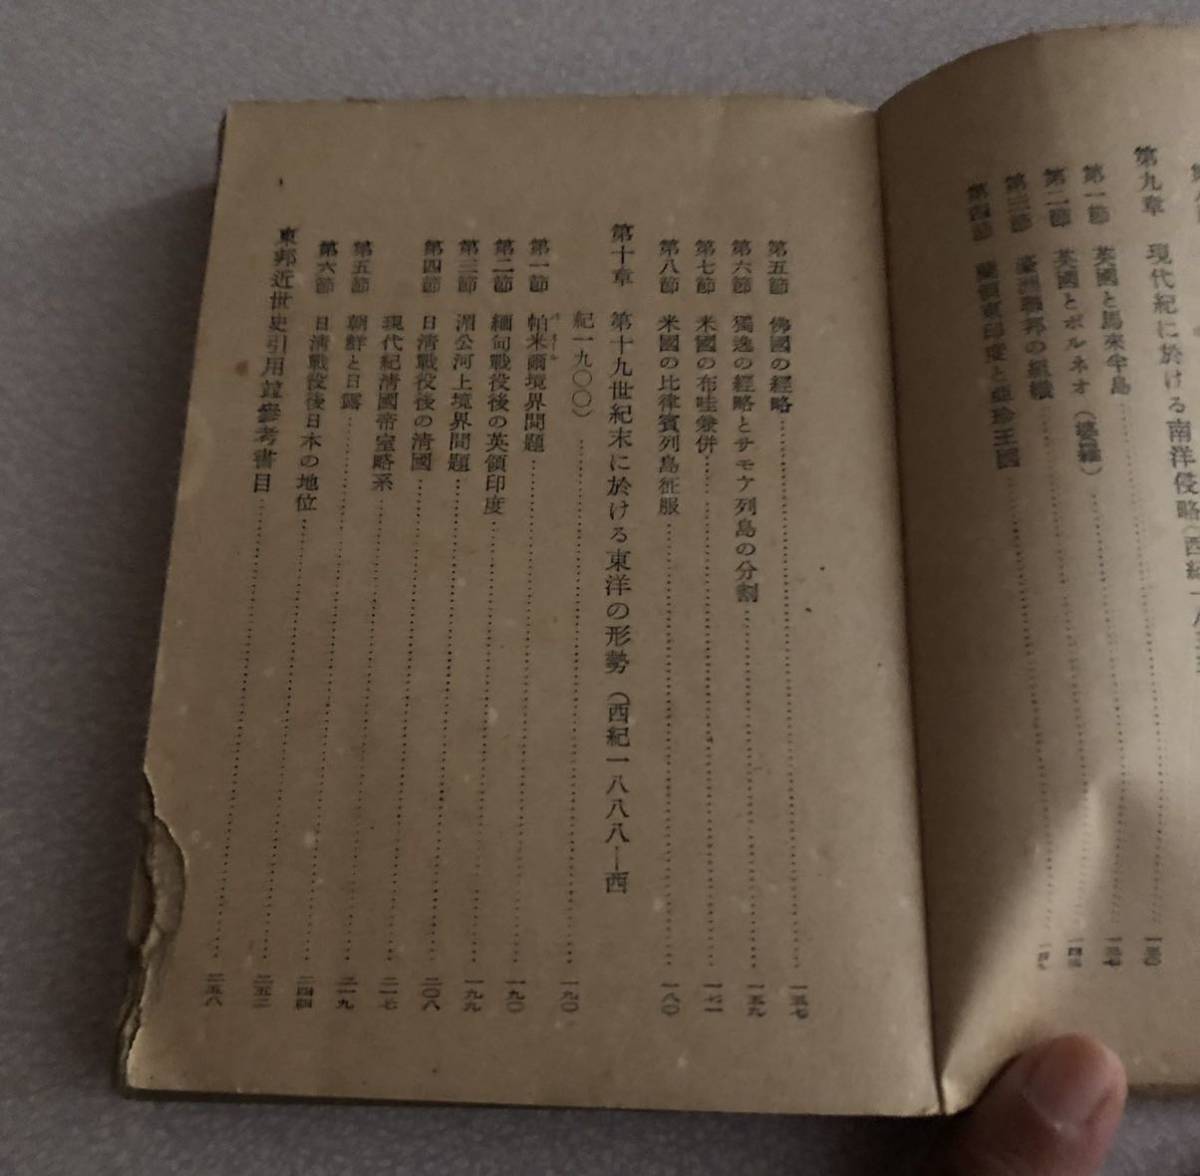 第九章 現代紀に於ける南洋侵略(西紀一八
一三〇
第一節 英國と馬來半島 一三七
第二節 英國とボルネオ(婆羅) 一四三
第三節 豪洲聯邦の組織 一四九
第四節 蘭領東印度と亞珍王國
第五節 佛國の經略 一五七
第六節 獨逸の經略とサモア列島の分割 一五九
第七節 米國の布哇兼併 一七一
第八節 米國の比律賓列島征服 一八〇
第十章 第十九世紀末に於ける東洋の形勢(西紀一八八八―西
紀一九〇〇) 一九〇
第一節 帕米爾境界問題 一九〇
第二節 緬甸戰役後の英領印度 一九九
第三節 湄公河上境界問題 二〇八
第四節 日清戰役後の清國
現代紀清國帝室略系 二一七
第五節 朝鮮と日露 二一九
第六節 日清戰役後日本の地位 二四四
東邦近世史引用並參考書目 二五二
二五八